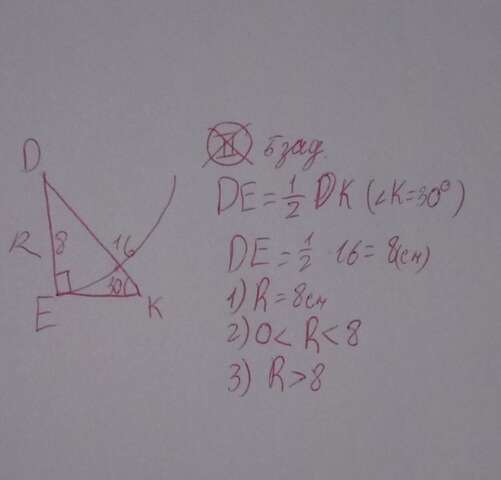 Ⅱ 5 зад.
D
DE = 1/2 DK (∠K = 30°)
R 8 16
DE = 1/2 16 = 8(см)
30°
E K
1) R = 8см
2) 0 < R < 8
3) R > 8